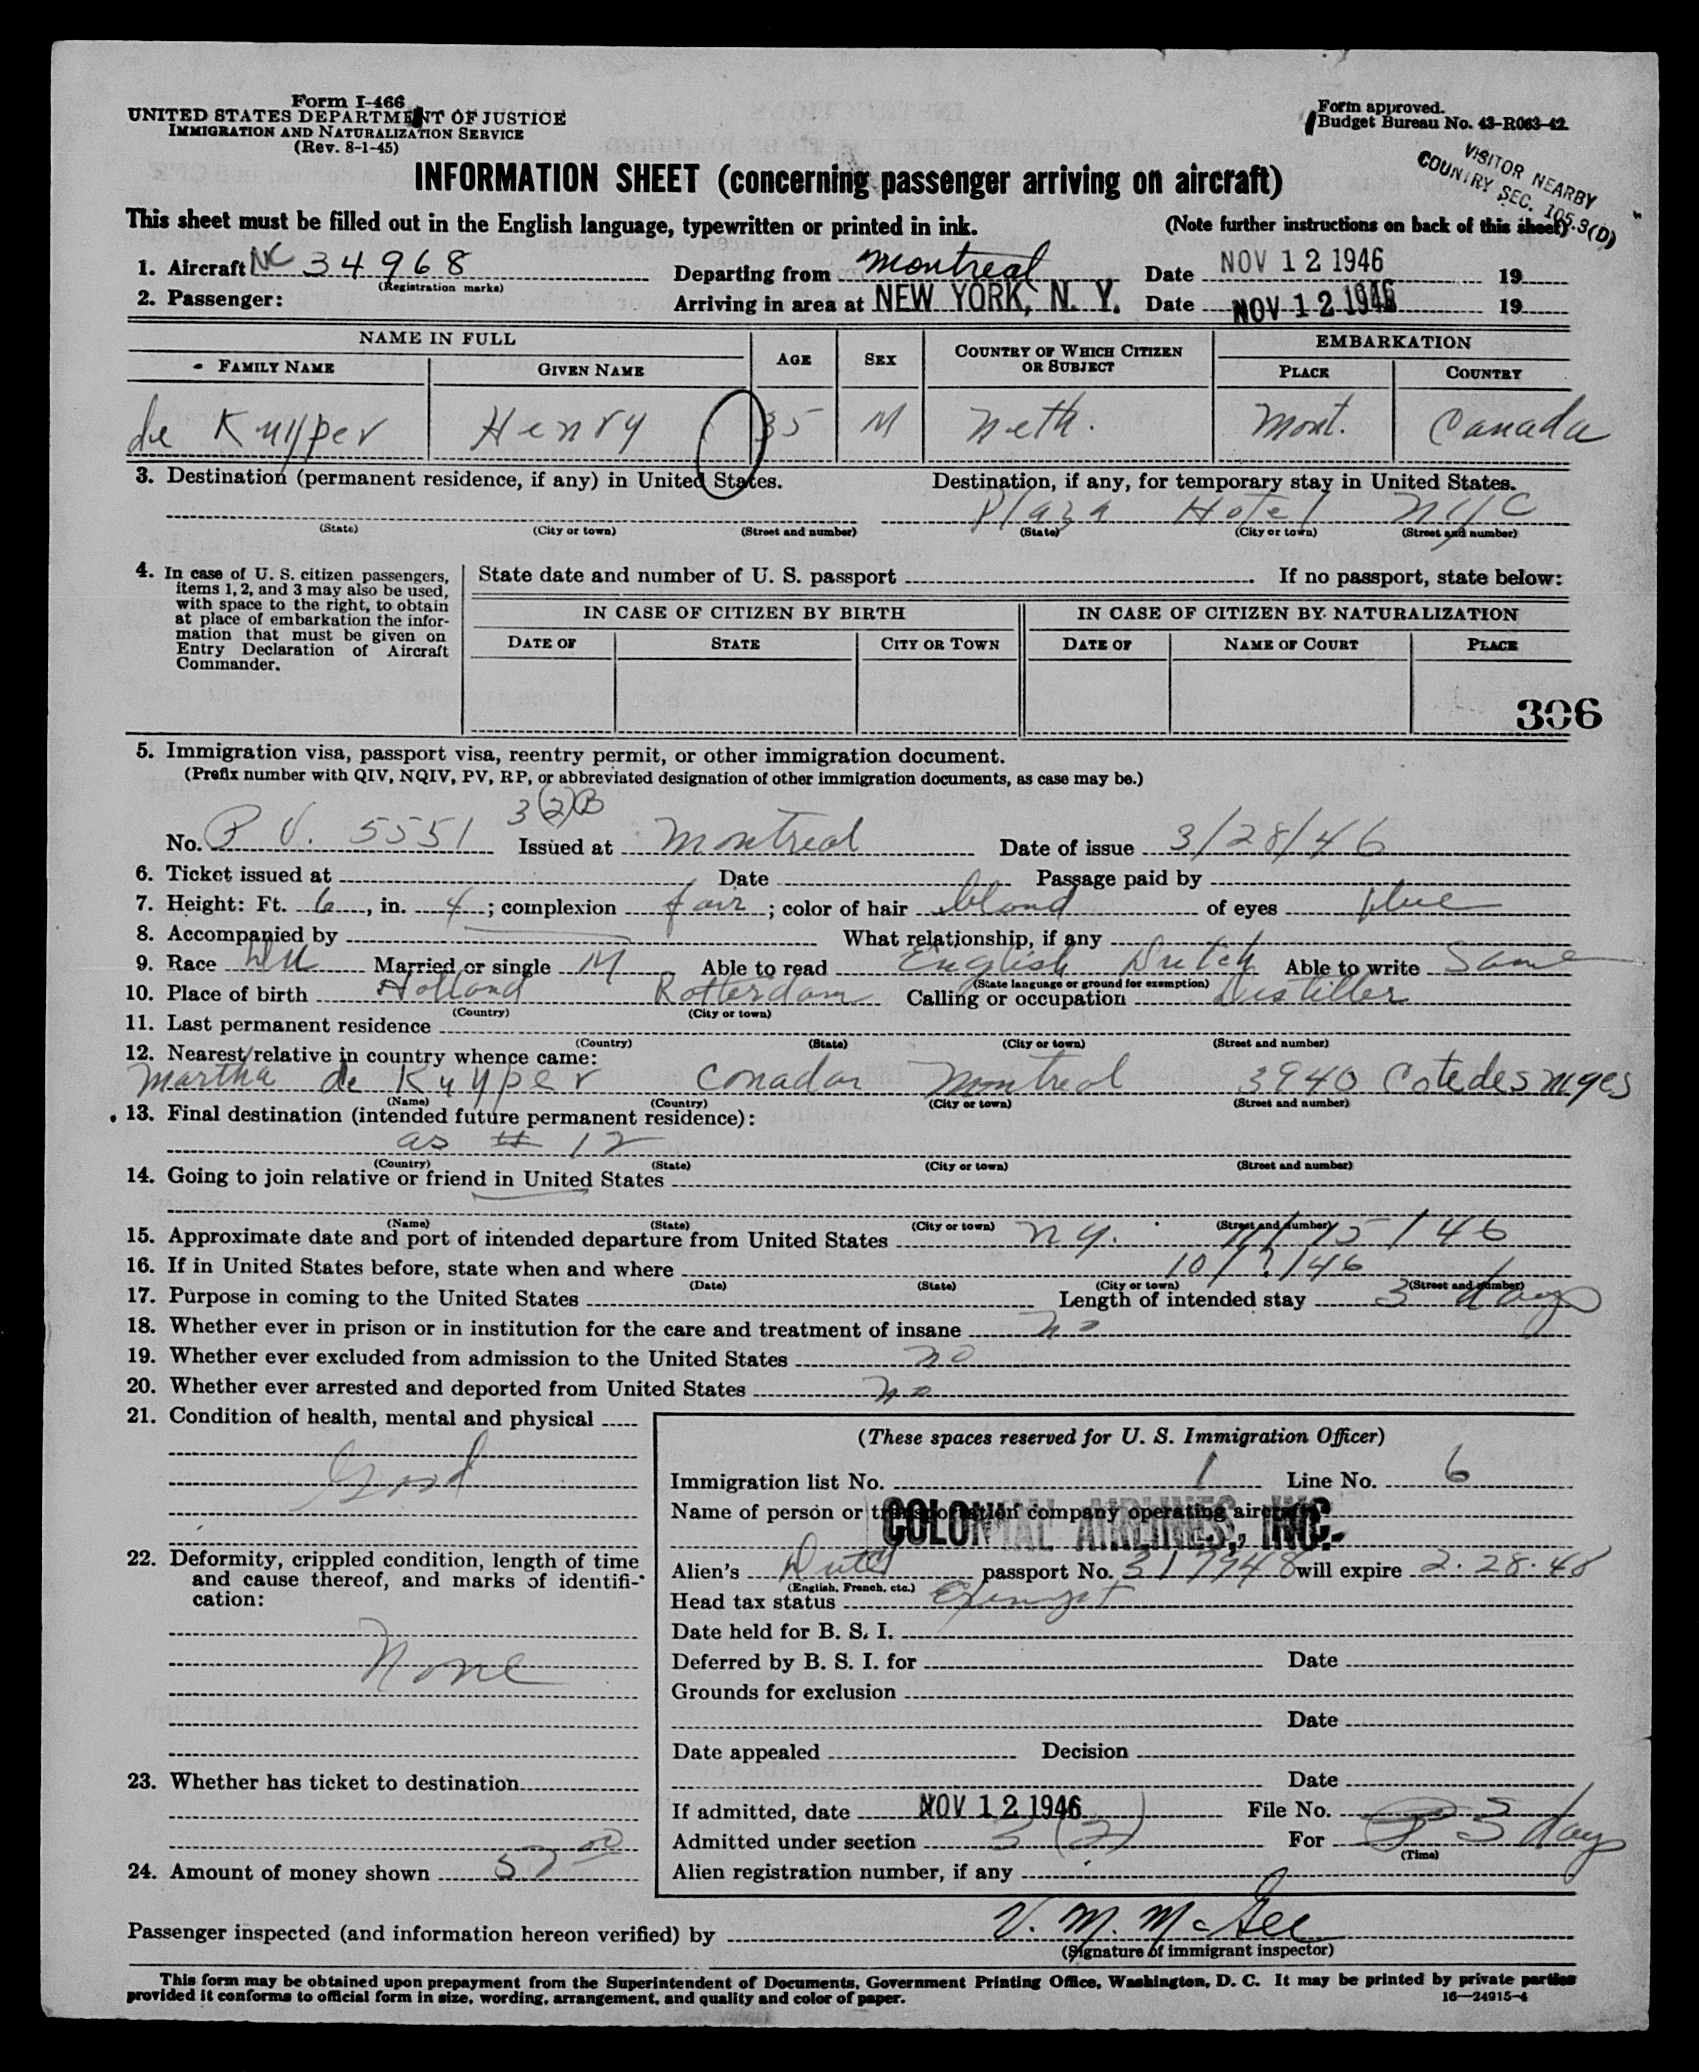 Form I-466
UNITED STATES DEPARTMENT OF JUSTICE
IMMIGRATION AND NATURALIZATION SERVICE
(Rev. 8-1-45)
Form approved.
Budget Bureau No. 43-R063-42.
VISITOR NEARBY
COUNTRY SEC. 105.3(D)
INFORMATION SHEET (concerning passenger arriving on aircraft)
This sheet must be filled out in the English language, typewritten or printed in ink. (Note further instructions on back of this sheet)
1. Aircraft NC 34968 Departing from Montreal Date NOV 12 1946 19
(Registration marks)
2. Passenger: Arriving in area at NEW YORK, N. Y. Date NOV 12 1946 19
NAME IN FULL AGE SEX COUNTRY OF WHICH CITIZEN OR SUBJECT EMBARKATION
FAMILY NAME GIVEN NAME PLACE COUNTRY
de Kuyper Henry 35 M Neth. Mont. Canada
3. Destination (permanent residence, if any) in United States. Destination, if any, for temporary stay in United States.
Plaza Hotel NYC
(State) (City or town) (Street and number) (State) (City or town) (Street and number)
4. In case of U. S. citizen passengers, items 1, 2, and 3 may also be used, with space to the right, to obtain at place of embarkation the information that must be given on Entry Declaration of Aircraft Commander.
State date and number of U. S. passport If no passport, state below:
IN CASE OF CITIZEN BY BIRTH IN CASE OF CITIZEN BY NATURALIZATION
DATE OF STATE CITY OR TOWN DATE OF NAME OF COURT PLACE
306
5. Immigration visa, passport visa, reentry permit, or other immigration document.
(Prefix number with QIV, NQIV, PV, RP, or abbreviated designation of other immigration documents, as case may be.)
3(2)B
No. P V. 5551 Issued at Montreal Date of issue 3/28/46
6. Ticket issued at Date Passage paid by
7. Height: Ft. 6, in. 4; complexion fair; color of hair blond of eyes blue
8. Accompanied by What relationship, if any
9. Race Du Married or single M Able to read English Dutch Able to write Same
(State language or ground for exemption)
10. Place of birth Holland Rotterdam Calling or occupation Distiller
(Country) (City or town)
11. Last permanent residence
(Country) (State) (City or town) (Street and number)
12. Nearest relative in country whence came:
Martha de Kuyper Canada Montreal 3940 Cotedesnyes
(Name) (Country) (City or town) (Street and number)
13. Final destination (intended future permanent residence):
as # 12
(Country) (State) (City or town) (Street and number)
14. Going to join relative or friend in United States
(Name) (State) (City or town) (Street and number)
15. Approximate date and port of intended departure from United States N.Y. 11/15/46
16. If in United States before, state when and where 10/?/46
(Date) (State) (City or town) (Street and number)
17. Purpose in coming to the United States Length of intended stay 3 days
18. Whether ever in prison or in institution for the care and treatment of insane no
19. Whether ever excluded from admission to the United States no
20. Whether ever arrested and deported from United States no
21. Condition of health, mental and physical
Good
22. Deformity, crippled condition, length of time and cause thereof, and marks of identification:
None
23. Whether has ticket to destination
24. Amount of money shown 57.00
(These spaces reserved for U. S. Immigration Officer)
Immigration list No. 1 Line No. 6
Name of person or transportation company operating aircraft
COLONIAL AIRLINES, INC.
Alien's Dutch passport No. 317948 will expire 2.28.48
(English, French, etc.)
Head tax status Exempt
Date held for B. S. I.
Deferred by B. S. I. for Date
Grounds for exclusion
Date
Date appealed Decision
Date
If admitted, date NOV 12 1946 File No.
Admitted under section 3(2) For P 3 days
(Time)
Alien registration number, if any
Passenger inspected (and information hereon verified) by V. M. McGee
(Signature of immigrant inspector)
This form may be obtained upon prepayment from the Superintendent of Documents, Government Printing Office, Washington, D. C. It may be printed by private parties
provided it conforms to official form in size, wording, arrangement, and quality and color of paper. 16—24915-4